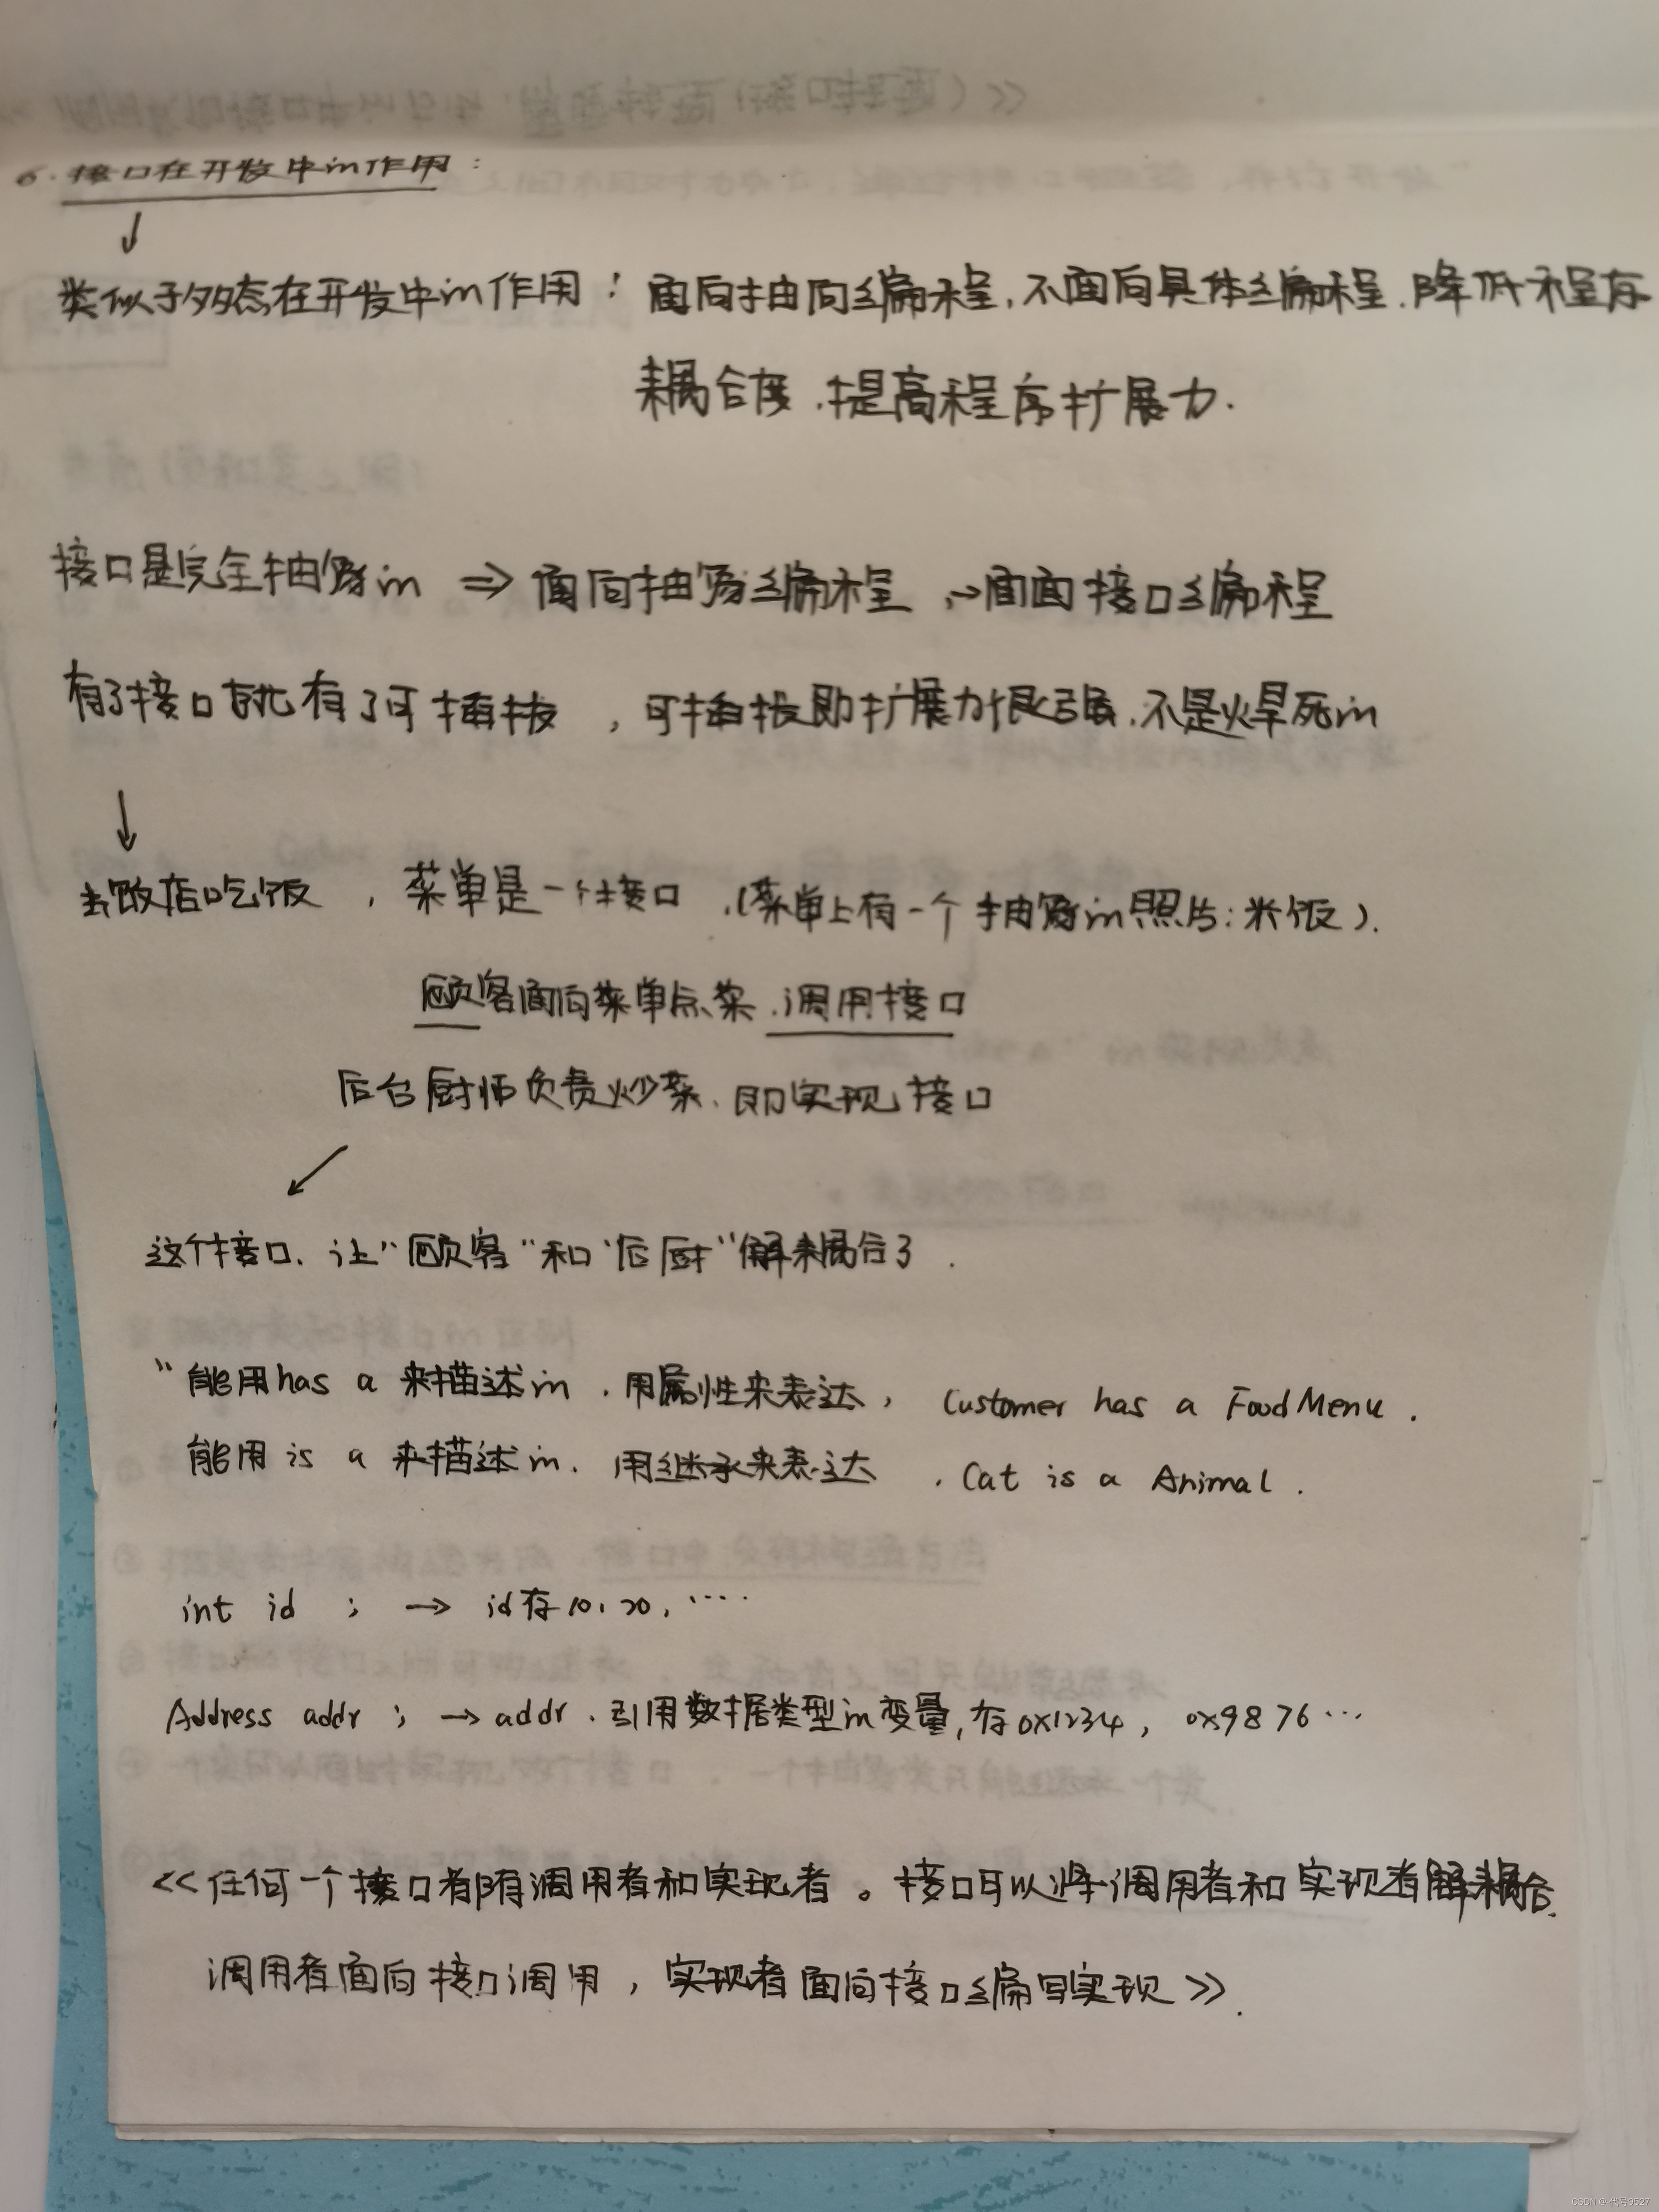 6. 接口在开发中in作用：
↓
类似于多态在开发中in作用： 面向抽向编程，不面向具体编程．降低程序
耦合度．提高程序扩展力．
接口是完全抽象in ⇒ 面向抽象编程 → 面面接口编程
有了接口就有了可插拔 ，可插拔即扩展力很强．不是焊死in
↓
去饭店吃饭 ，菜单是一个接口．（菜单上有一个抽象in照片：米饭）．
顾客面向菜单点菜．调用接口
后台厨师负责炒菜．即实现接口
↙
这个接口．让"顾客"和"后厨"解耦合了．
"能用has a 来描述in．用属性来表达， Customer has a FoodMenu ．
能用 is a 来描述in．用继承来表达 ．Cat is a Animal ．
int id ； → id存10，20，····
Address addr ； → addr．引用数据类型in变量，存0x1234，0x9876···
<<任何一个接口都有调用者和实现者。接口可以将调用者和实现者解耦合．
调用者面向接口调用，实现者面向接口编写实现>>．
CSDN @代号9527